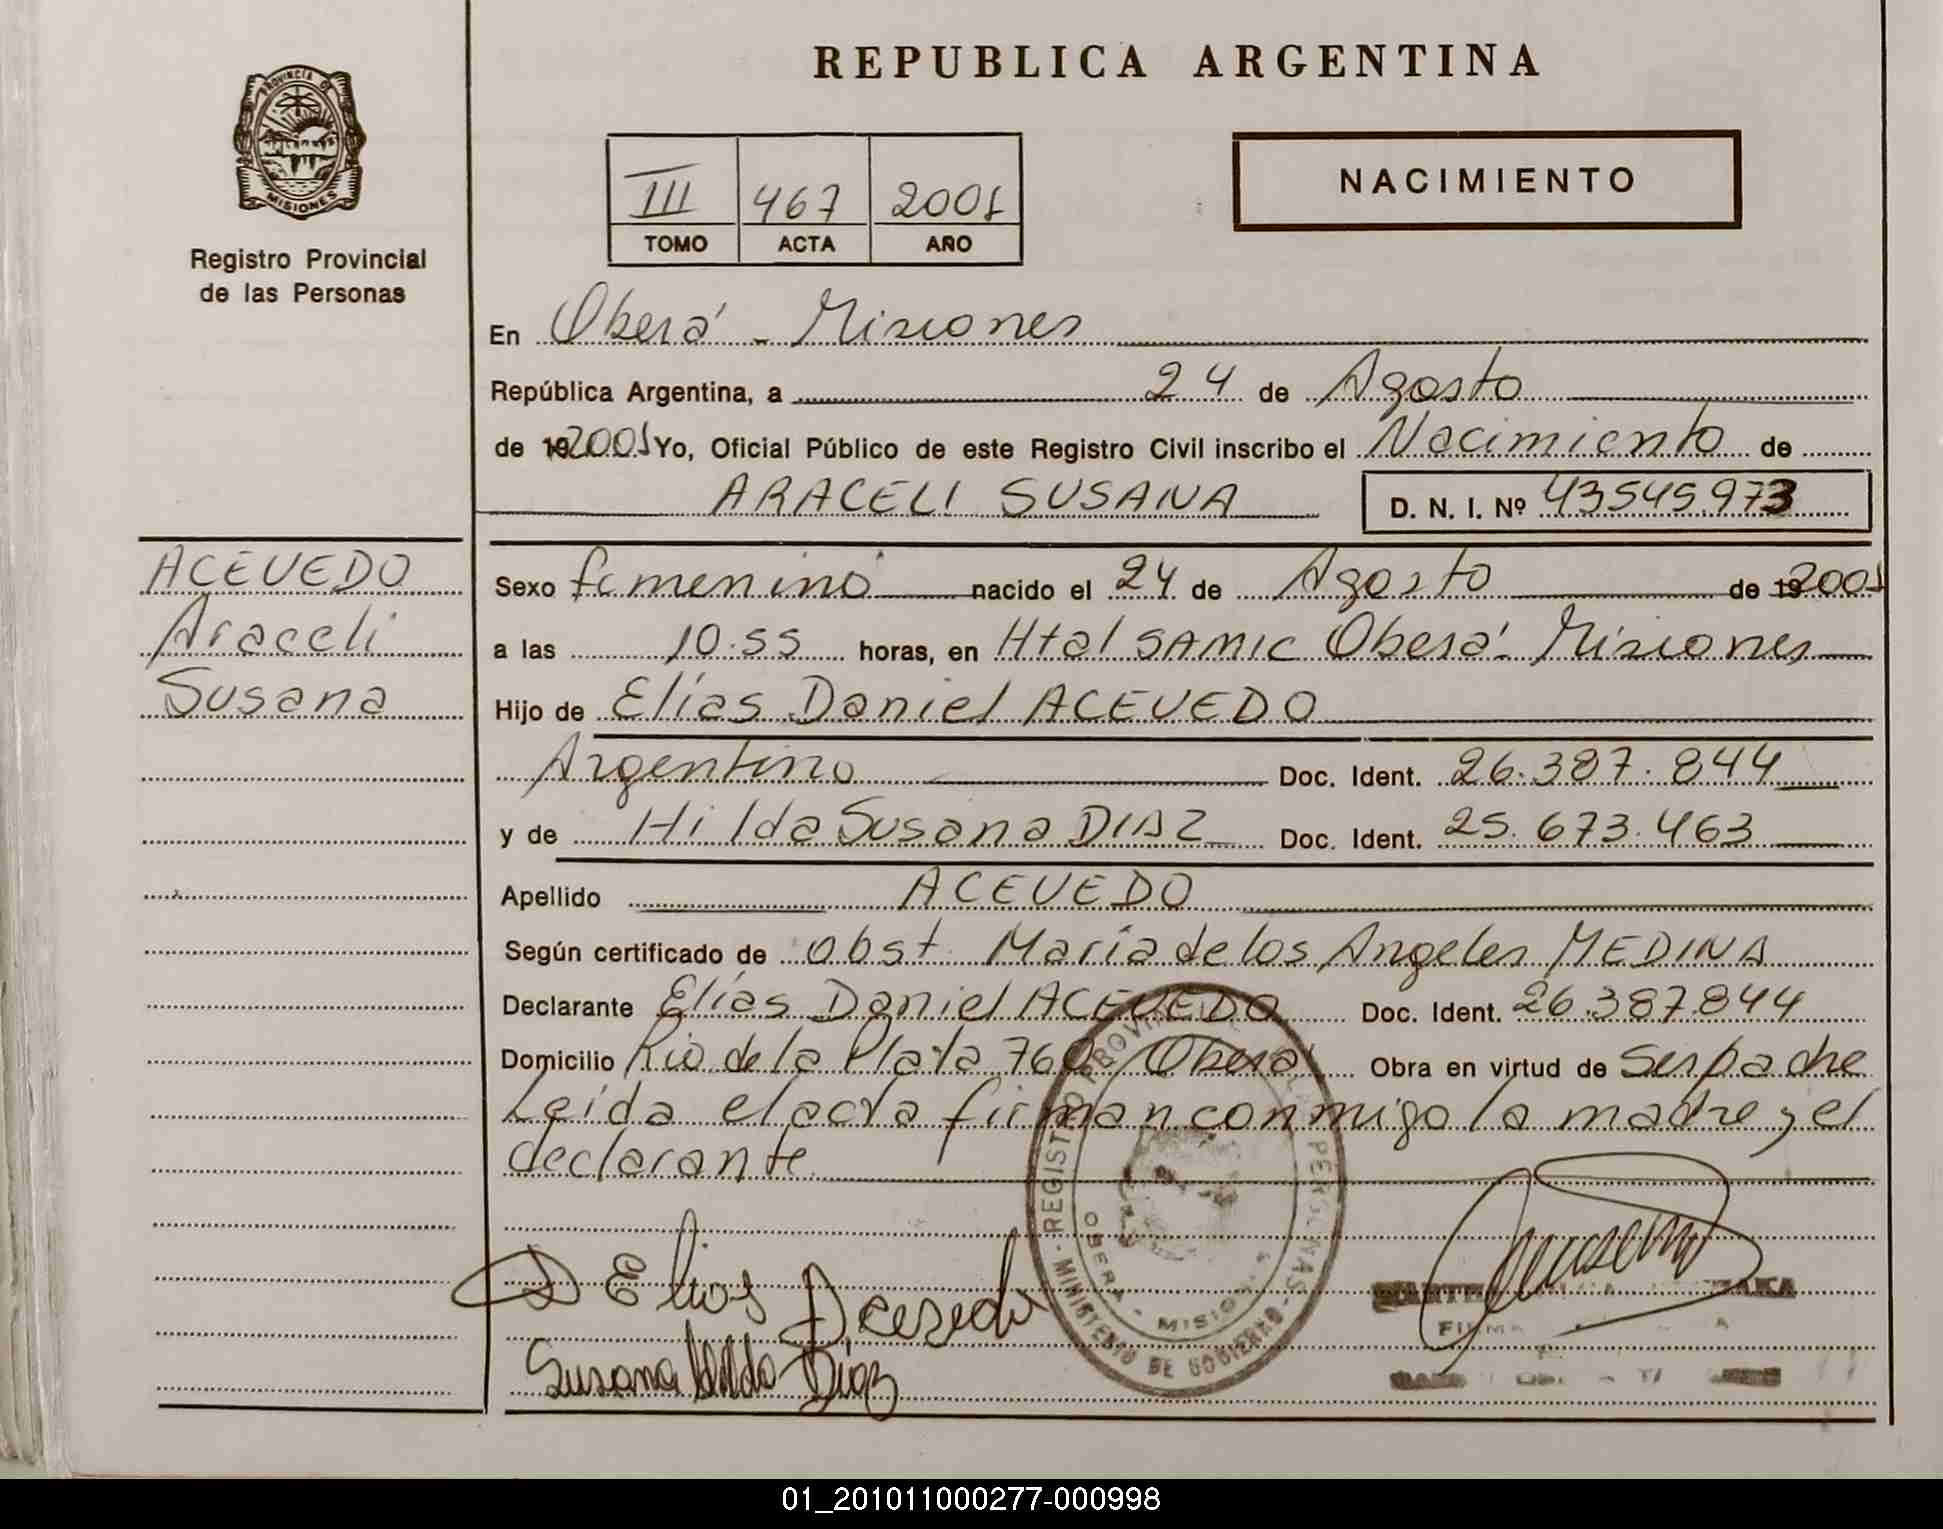 REPUBLICA ARGENTINA
PROVINCIA DE
MISIONES
Registro Provincial
de las Personas
III 467 2001
TOMO ACTA AÑO
NACIMIENTO
En Oberá - Misiones
República Argentina, a 24 de Agosto
de 19 2001 Yo, Oficial Público de este Registro Civil inscribo el Nacimiento de
ARACELI SUSANA D. N. I. Nº 43545.973
ACEVEDO
Araceli
Susana
Sexo femenino nacido el 24 de Agosto de 19 2001
a las 10.55 horas, en Htal SAMIC Oberá - Misiones
Hijo de Elías Daniel ACEVEDO
Argentino Doc. Ident. 26.387.844
y de Hilda Susana DIAZ Doc. Ident. 25.673.463
Apellido ACEVEDO
Según certificado de obst. María de los Angeles MEDINA
Declarante Elías Daniel ACEVEDO Doc. Ident. 26.387.844
Domicilio Rio de la Plata 760 Oberá Obra en virtud de Ser padre
Leída el acta firman conmigo la madre y el
declarante
Elias Acevedo
Susana Hilda Diaz
REGISTRO PROVINCIAL DE LAS PERSONAS
MINISTERIO DE GOBIERNO
OBERA - MISIONES
01_201011000277-000998